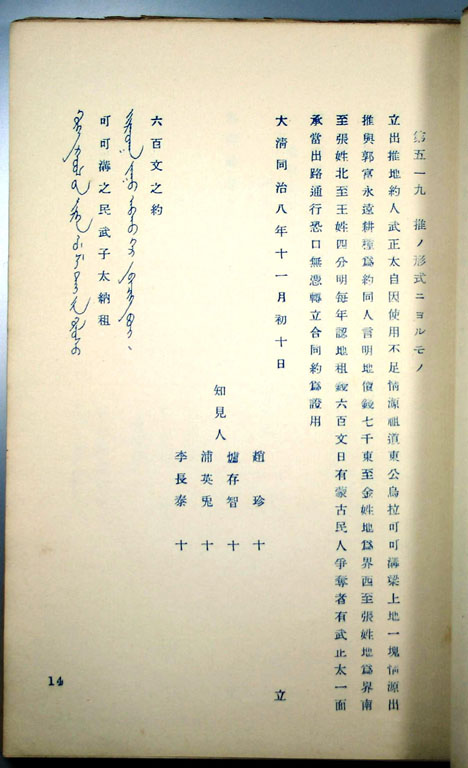 第五一九 推ノ形式ニヨルモノ
立出推地約人武正太自因使用不足情源祖道東公烏拉可可溝梁上地一塊情源出
推與郭富永遠耕種爲約同人言明地價錢七千東至金姓地爲界西至張姓地爲界南
至張姓北至王姓四分明每年認地租錢六百文日有蒙古民人爭奪者有武正太一面
承當出路通行恐口無憑轉立合同約爲證用
大淸同治八年十一月初十日 立
知見人 趙珍 十
存智 十
浦英兎 十
李長泰 十
六百文之約
可可溝之民武子太納租
14